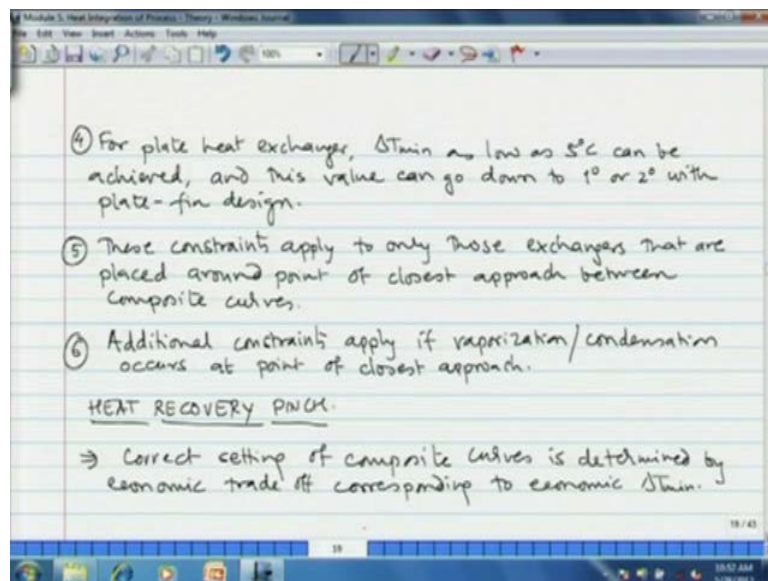 Module 5. Heat Integration of Process - Theory - Windows Journal
File Edit View Insert Actions Tools Help
100%
④ For plate heat exchanger, ΔTmin as low as 5°C can be
achieved, and this value can go down to 1° or 2° with
plate-fin design.
⑤ These constraints apply to only those exchangers that are
placed around point of closest approach between
composite curves.
⑥ Additional constraints apply if vaporization/condensation
occurs at point of closest approach.
HEAT RECOVERY PINCH.
⇒ Correct setting of composite curves is determined by
economic trade off corresponding to economic ΔTmin.
18 / 43
10:52 AM